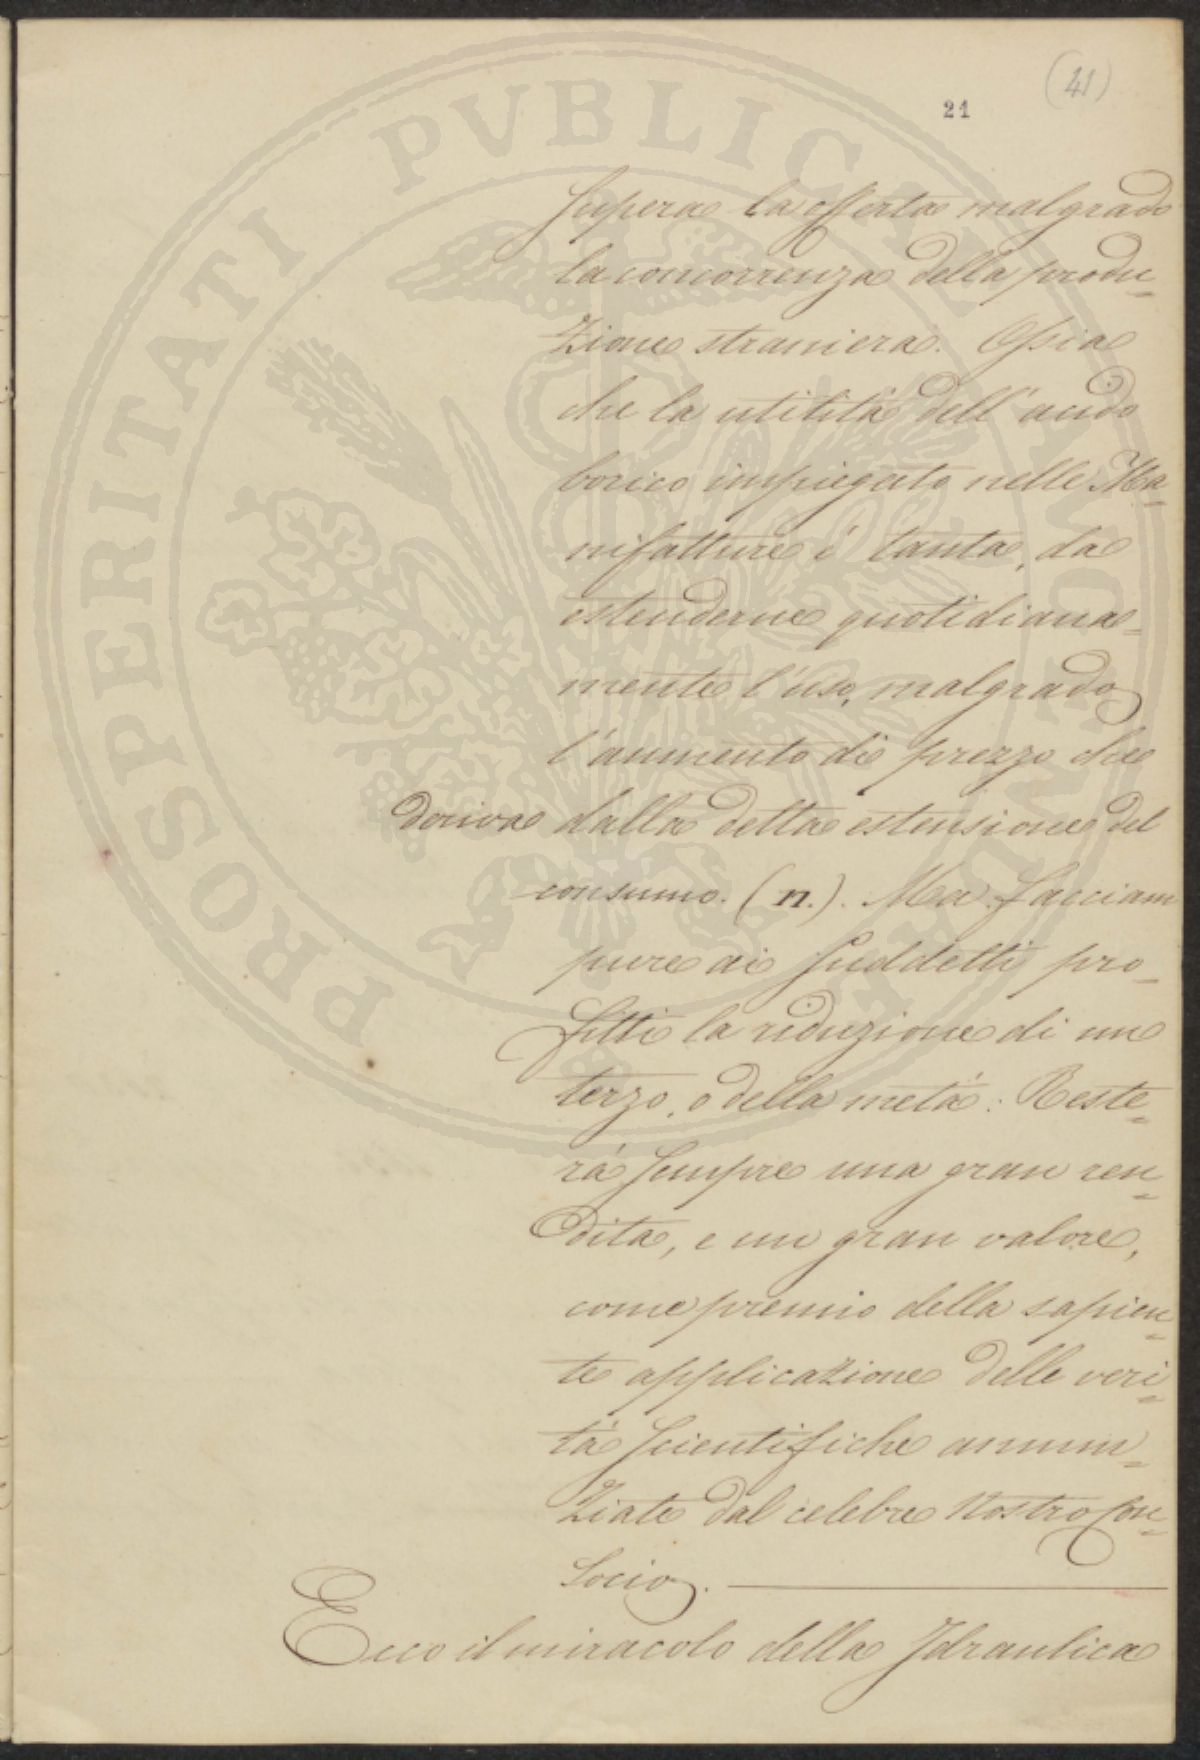 (41)
21
supera la offerta malgrado
la concorrenza della produ=
zione straniera. Ossia
che la utilità dell'acido
borico impiegato nelle Ma=
nifatture é tanta, da
estenderne quotidiana=
mente l'uso, malgrado
l'aumento di prezzo che
deriva dalla detta estensione del
consumo. (n.). Ma facciam
pure ai suddetti pro=
fitti la riduzione di un
terzo, o della metá: Reste=
rá sempre una gran ren=
dita, e un gran valore,
come premio della sapien=
te applicazione delle veri=
tá scientifiche annun=
ziate dal celebre Nostro Con=
socio.
Ecco il miracolo della Idraulica
PROSPERITATI PVBLICAE AVGENDAE